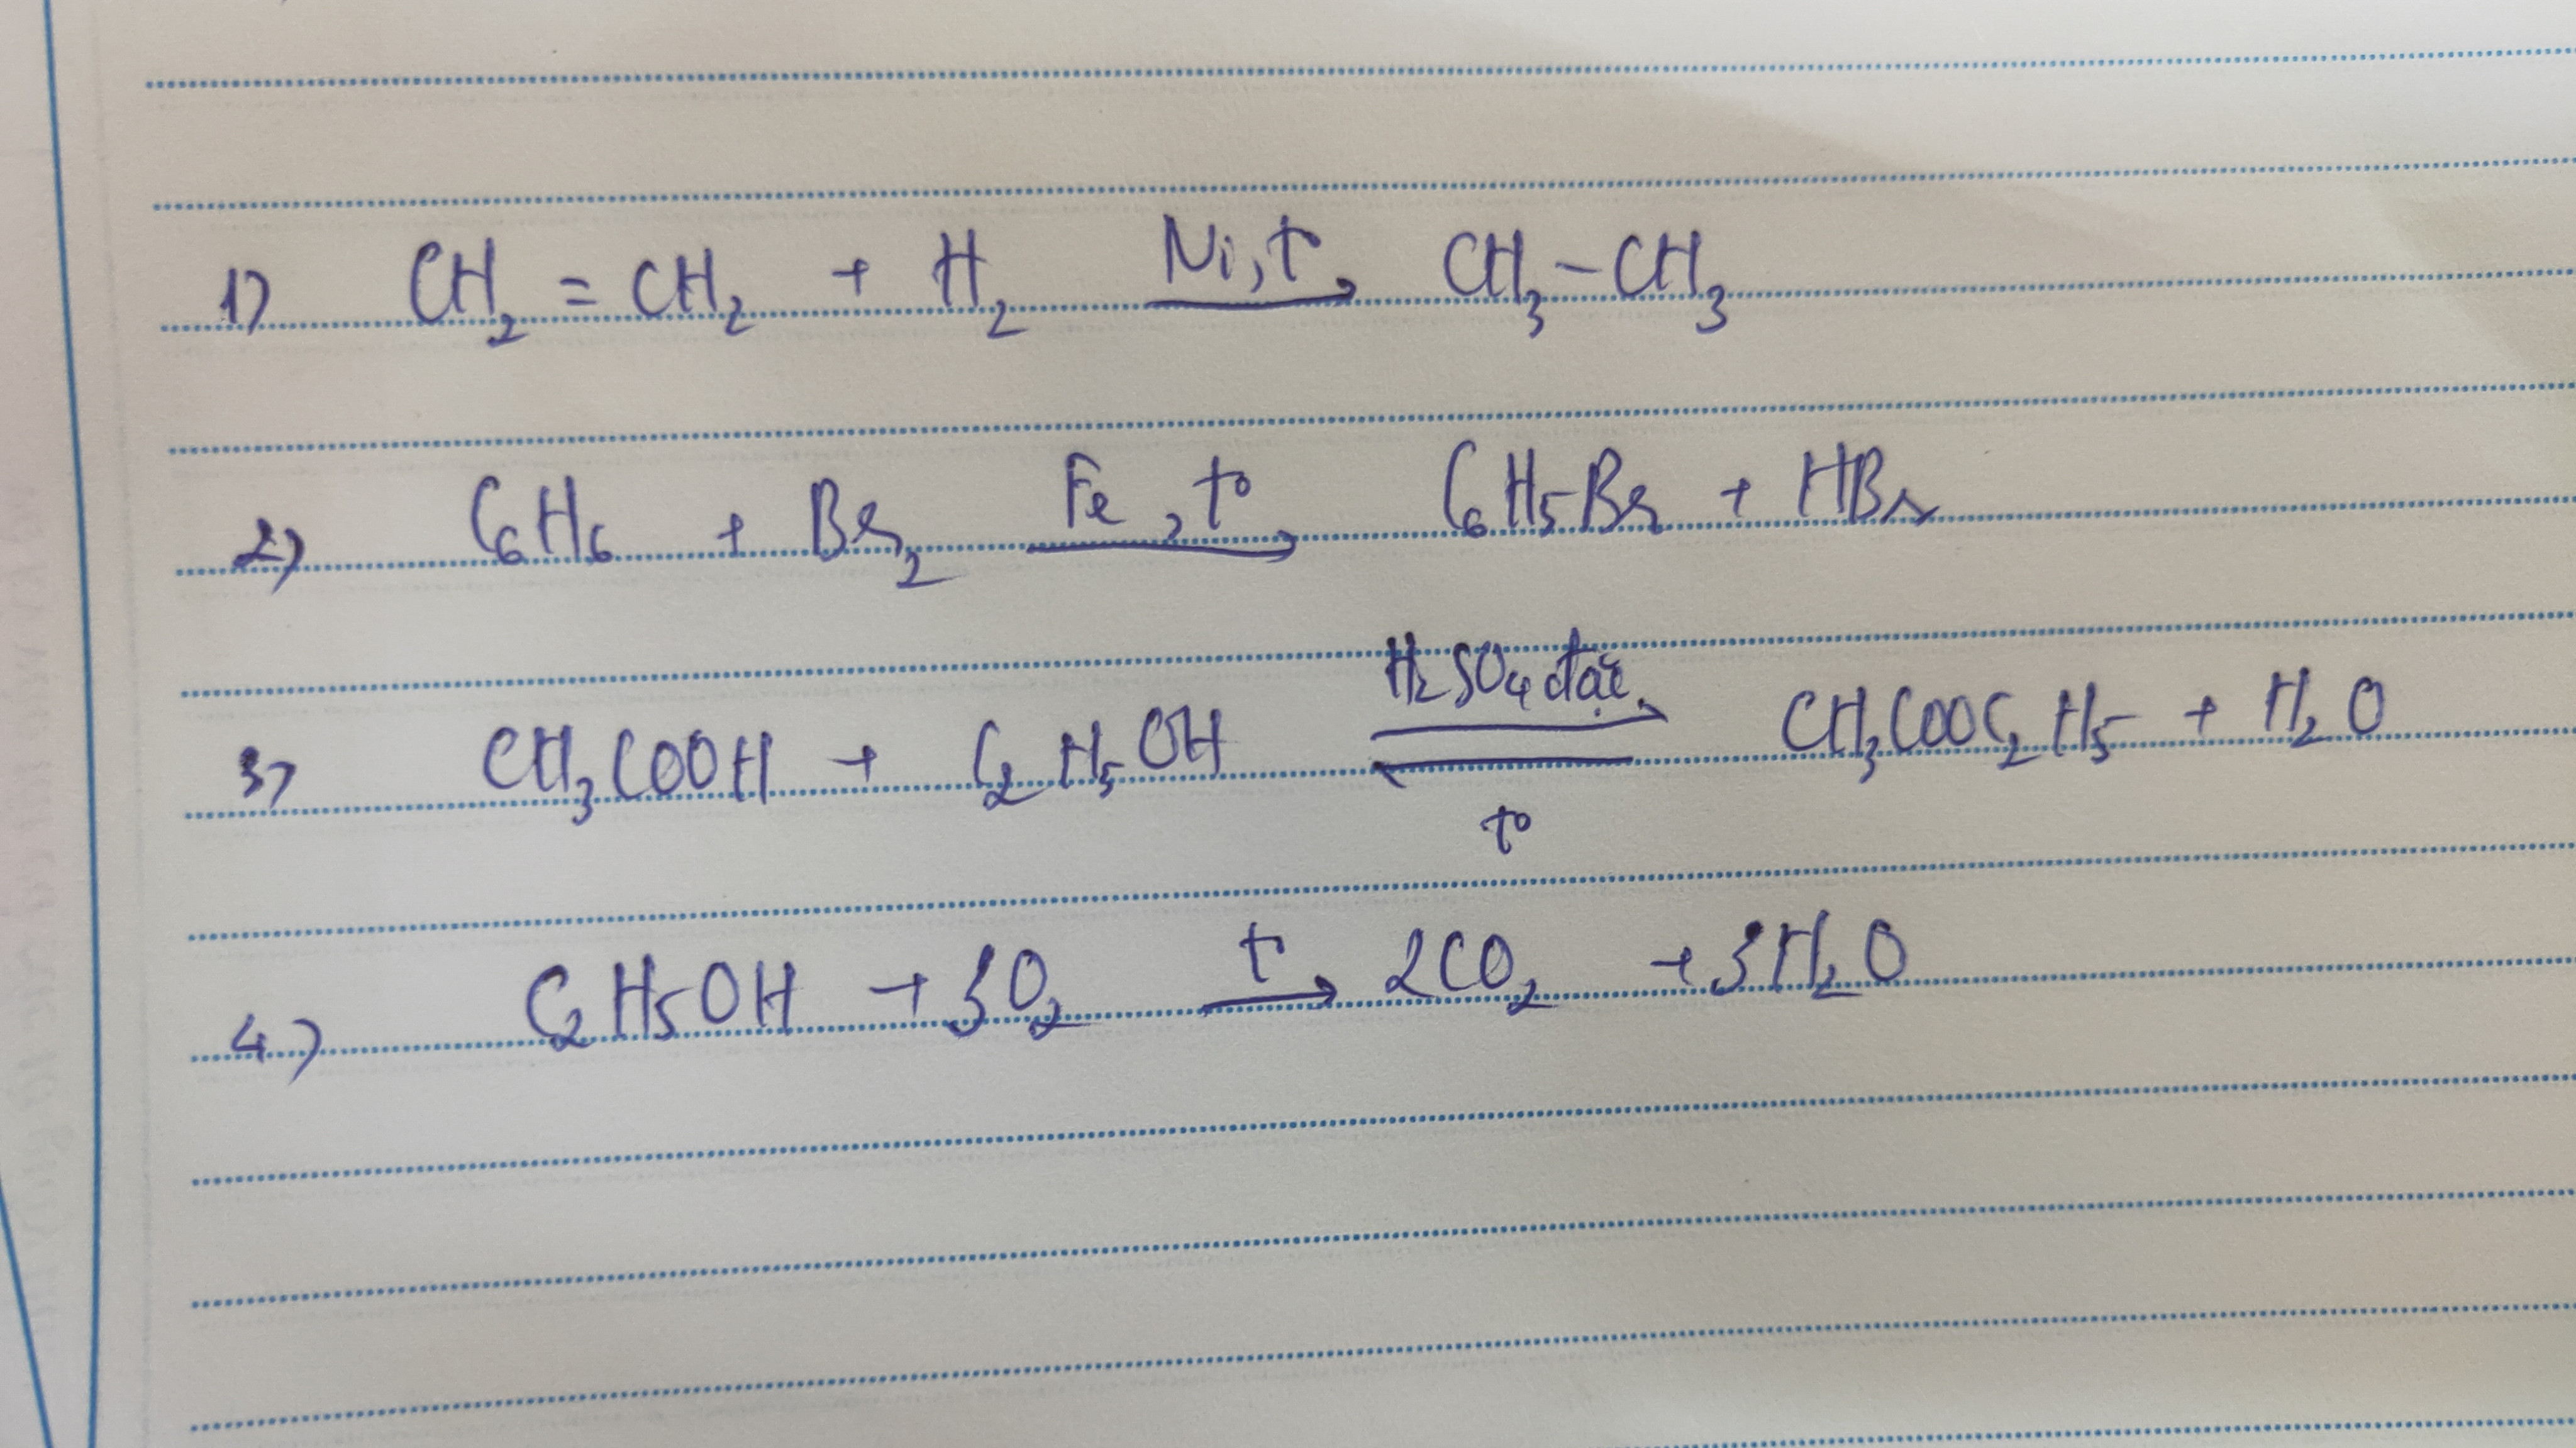 1) CH₂ = CH₂ + H₂ —Ni, t°→ CH₃ – CH₃
2) C₆H₆ + Br₂ —Fe, t°→ C₆H₅Br + HBr
3) CH₃COOH + C₂H₅OH ⇌ (H₂SO₄ đặc, t°) CH₃COOC₂H₅ + H₂O
4) C₂H₅OH + 3O₂ —t°→ 2CO₂ + 3H₂O